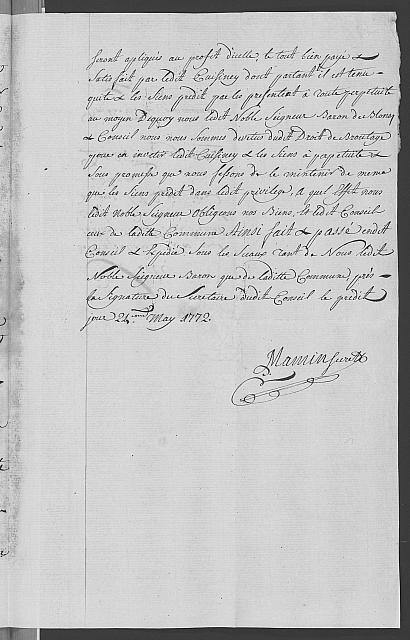 seront apliqués au profit d'icelle, le tout bien payé &
satisfait par ledit Cuiseney dont partant il est tenu
quite & les siens prédit par les presentent à toute perpetuité
au moyen dequoy nous ledit Noble Seigneur Baron de Blonay
& Conseil nous nous sommes devetus dudit Droit de
pour en invetir ledit Cuiseney & les siens à papetuité &
sous promesse que nous fesons de le maintenir de meme
que les siens prédit dans ledit privilege, a quel effet nous
ledit noble Seigneur Obligeons nos Biens, et ledit Conseil
ceux de laditte Commune Ainsi fait & passé endit
Conseil & Expedié sous les Sceaux tant de Nous ledit
Noble Seigneur Baron que de laditte Commune, près
la Signature du Secretaire dudit Conseil le prédit
jour 24.ieme May 1772.
Mamin secret